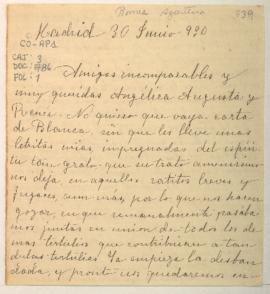 339
Madrid 30 Junio 920
CO-APS
CAJ: 3
DOC: 786
FOL: 1
Amigas incomparables y
muy queridas Angélica Augusta y
No quiero que vaya carta
de Blanca, sin que les lleve unas
letritas mias, impregnadas del espíri
tu tan grato que su trato amenísimo
nos deja, en aquellos ratitos breves y
fugaces, por lo que nos hacen
gozar, en que semanalmente pasaba
mos juntas en union de todos los de
mas tertulios que contribuian a tan
tertulias. Ya empieza la desban
dada, y pronto nos quedaremos